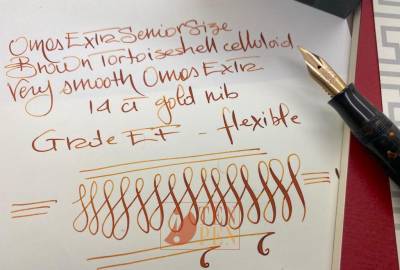 Omas Extra Senior Size
Brown Tortoiseshell celluloid
Very smooth Omas Extra
14 ct gold nib
Grade EF - flexible
TEN
PEN